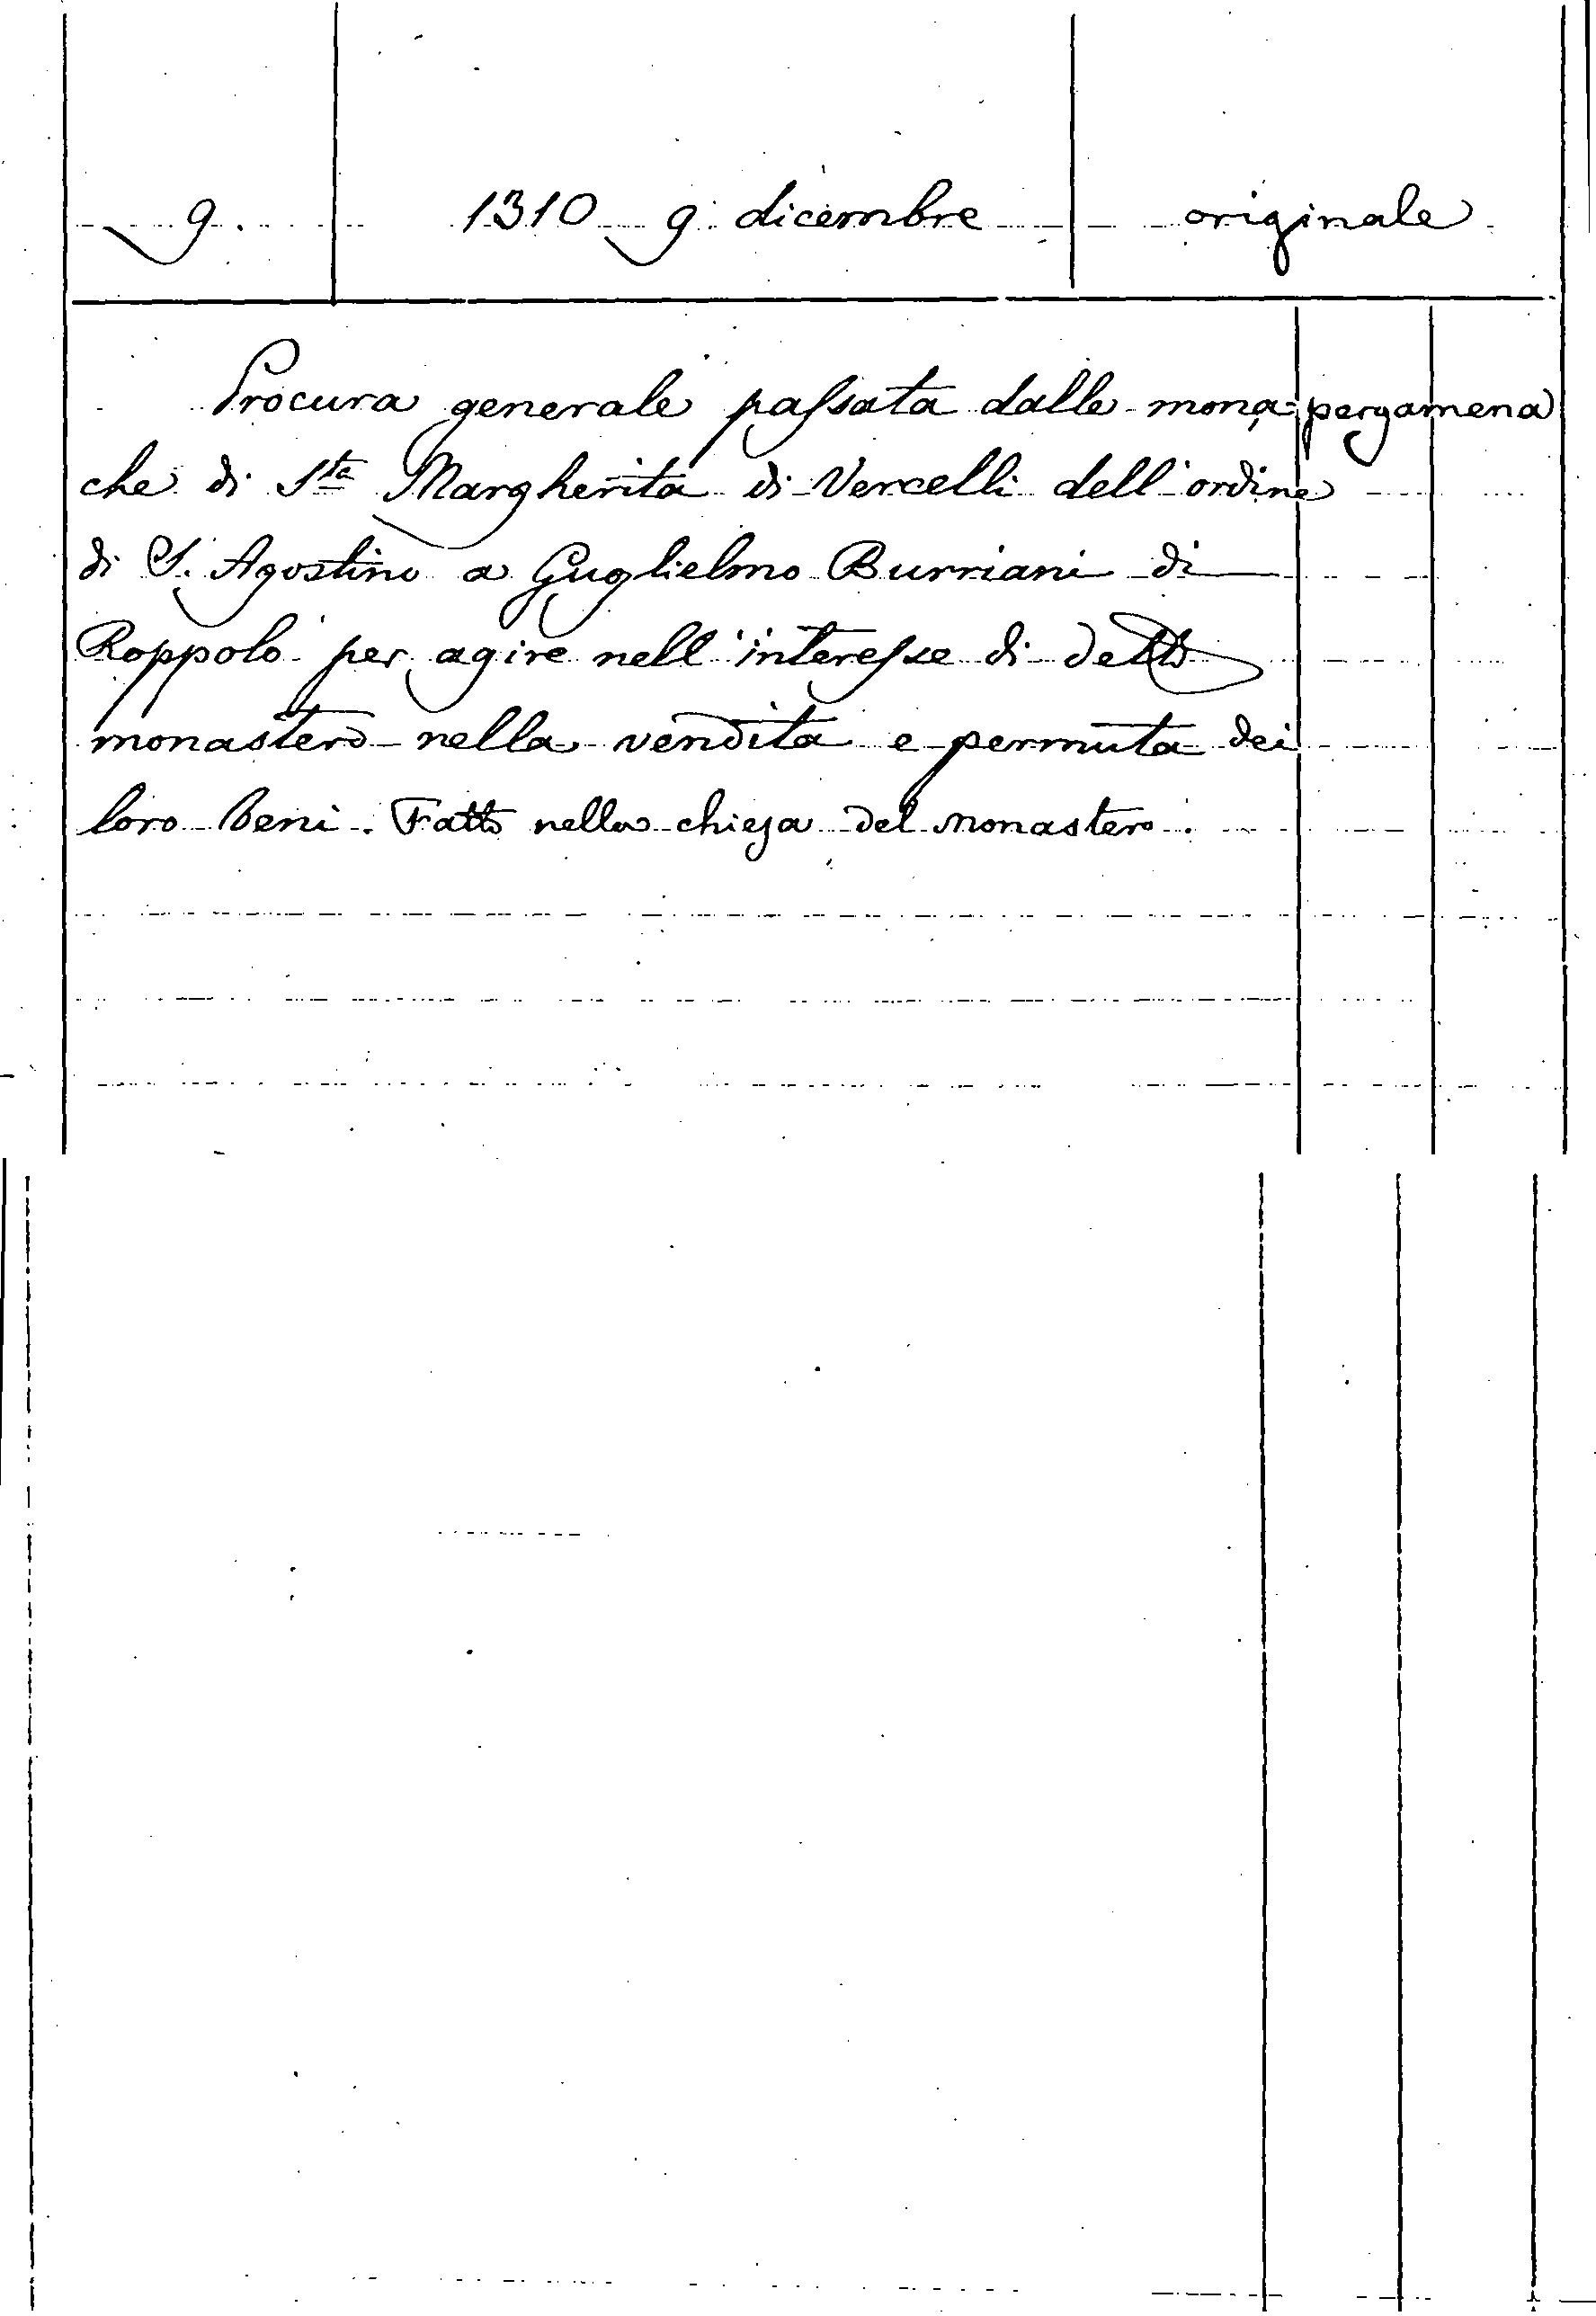 9. 1310 9 dicembre originale
Procura generale passata dalle mona= pergamena
che di Sta Margherita di Vercelli dell'ordine
di S. Agostino a Guglielmo Burriani di
Roppolo per agire nell'interesse di detto
monastero nella vendita e permuta dei
loro beni. Fatto nella chiesa del monastero.